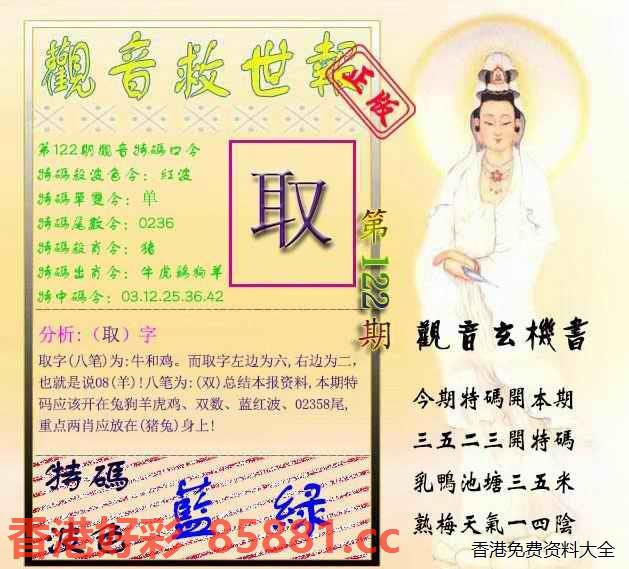 觀音救世報
正版
第122期觀音特碼口令
特碼殺波色令：紅波
特碼單雙令：单
特碼尾數令：0236
特碼殺肖令：豬
特碼出肖令：牛虎鷄狗羊
特中碼令：03.12.25.36.42
取
第122期
分析:（取）字
取字(八笔)为:牛和鸡。而取字左边为六,右边为二，
也就是说08(羊)!八笔为:(双)总结本报资料,本期特
码应该开在兔狗羊虎鸡、双数、蓝红波、02358尾,
重点两肖应放在(猪兔)身上!
特碼
波色
藍 綠
觀音玄機書
今期特碼開本期
三五二三開特碼
乳鴨池塘三五米
熟梅天氣一四陰
香港好彩 85881.cc
香港免费资料大全